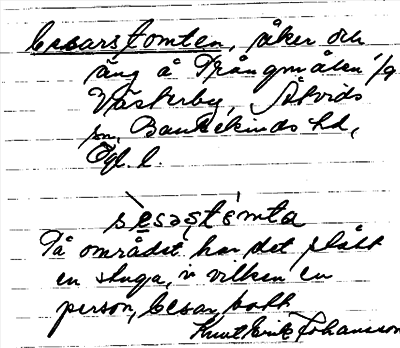 Cesarstomten, åker och
äng å Trångmålen 1/9
Västerby, Åtvids
sn, Bankekinds hd,
Ögl. l.
sesastomta
På området har det stått
en stuga, i vilken en
person, Cesar, bott
Knut Erik Johansson